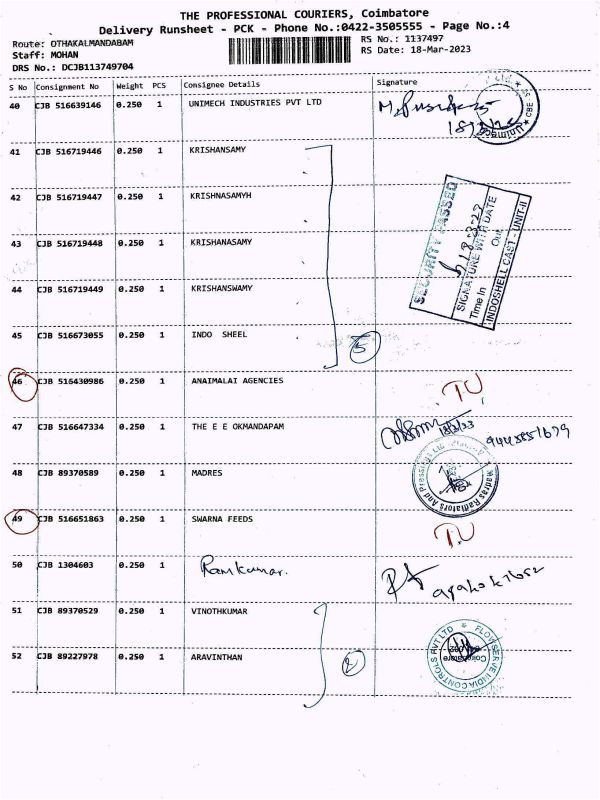 THE PROFESSIONAL COURIERS, Coimbatore
Delivery Runsheet - PCK - Phone No.:0422-3505555 - Page No.:4
Route: OTHAKALMANDABAM RS No.: 1137497
Staff: MOHAN RS Date: 18-Mar-2023
DRS No.: DCJB113749704
S No Consignment No Weight PCS Consignee Details Signature
40 CJB 516639146 0.250 1 UNIMECH INDUSTRIES PVT LTD
41 CJB 516719446 0.250 1 KRISHANSAMY
42 CJB 516719447 0.250 1 KRISHNASAMYH
43 CJB 516719448 0.250 1 KRISHANASAMY
44 CJB 516719449 0.250 1 KRISHANSWAMY
SECURITY PASSED
18-3-23
SIGNATURE WITH DATE
Time In Out
INDOSHELL CAST - UNIT-II
45 CJB 516673055 0.250 1 INDO SHEEL
5
46 CJB 516430986 0.250 1 ANAIMALAI AGENCIES T.U
47 CJB 516647334 0.250 1 THE E E OKMANDAPAM 18/3/23
48 CJB 89370589 0.250 1 MADRES
Madras Radiators And Pressings Ltd
49 CJB 516651863 0.250 1 SWARNA FEEDS T.U
50 CJB 1304603 0.250 1 Ramkumar.
51 CJB 89370529 0.250 1 VINOTHKUMAR
52 CJB 89227978 0.250 1 ARAVINTHAN
2
FLOWSERVE INDIA CONTROLS PVT LTD
Coimbatore